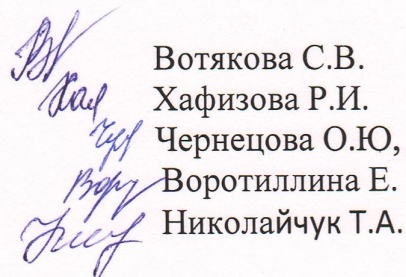 Вотякова С.В.
Хафизова Р.И.
Чернецова О.Ю,
Воротиллина Е.
Николайчук Т.А.